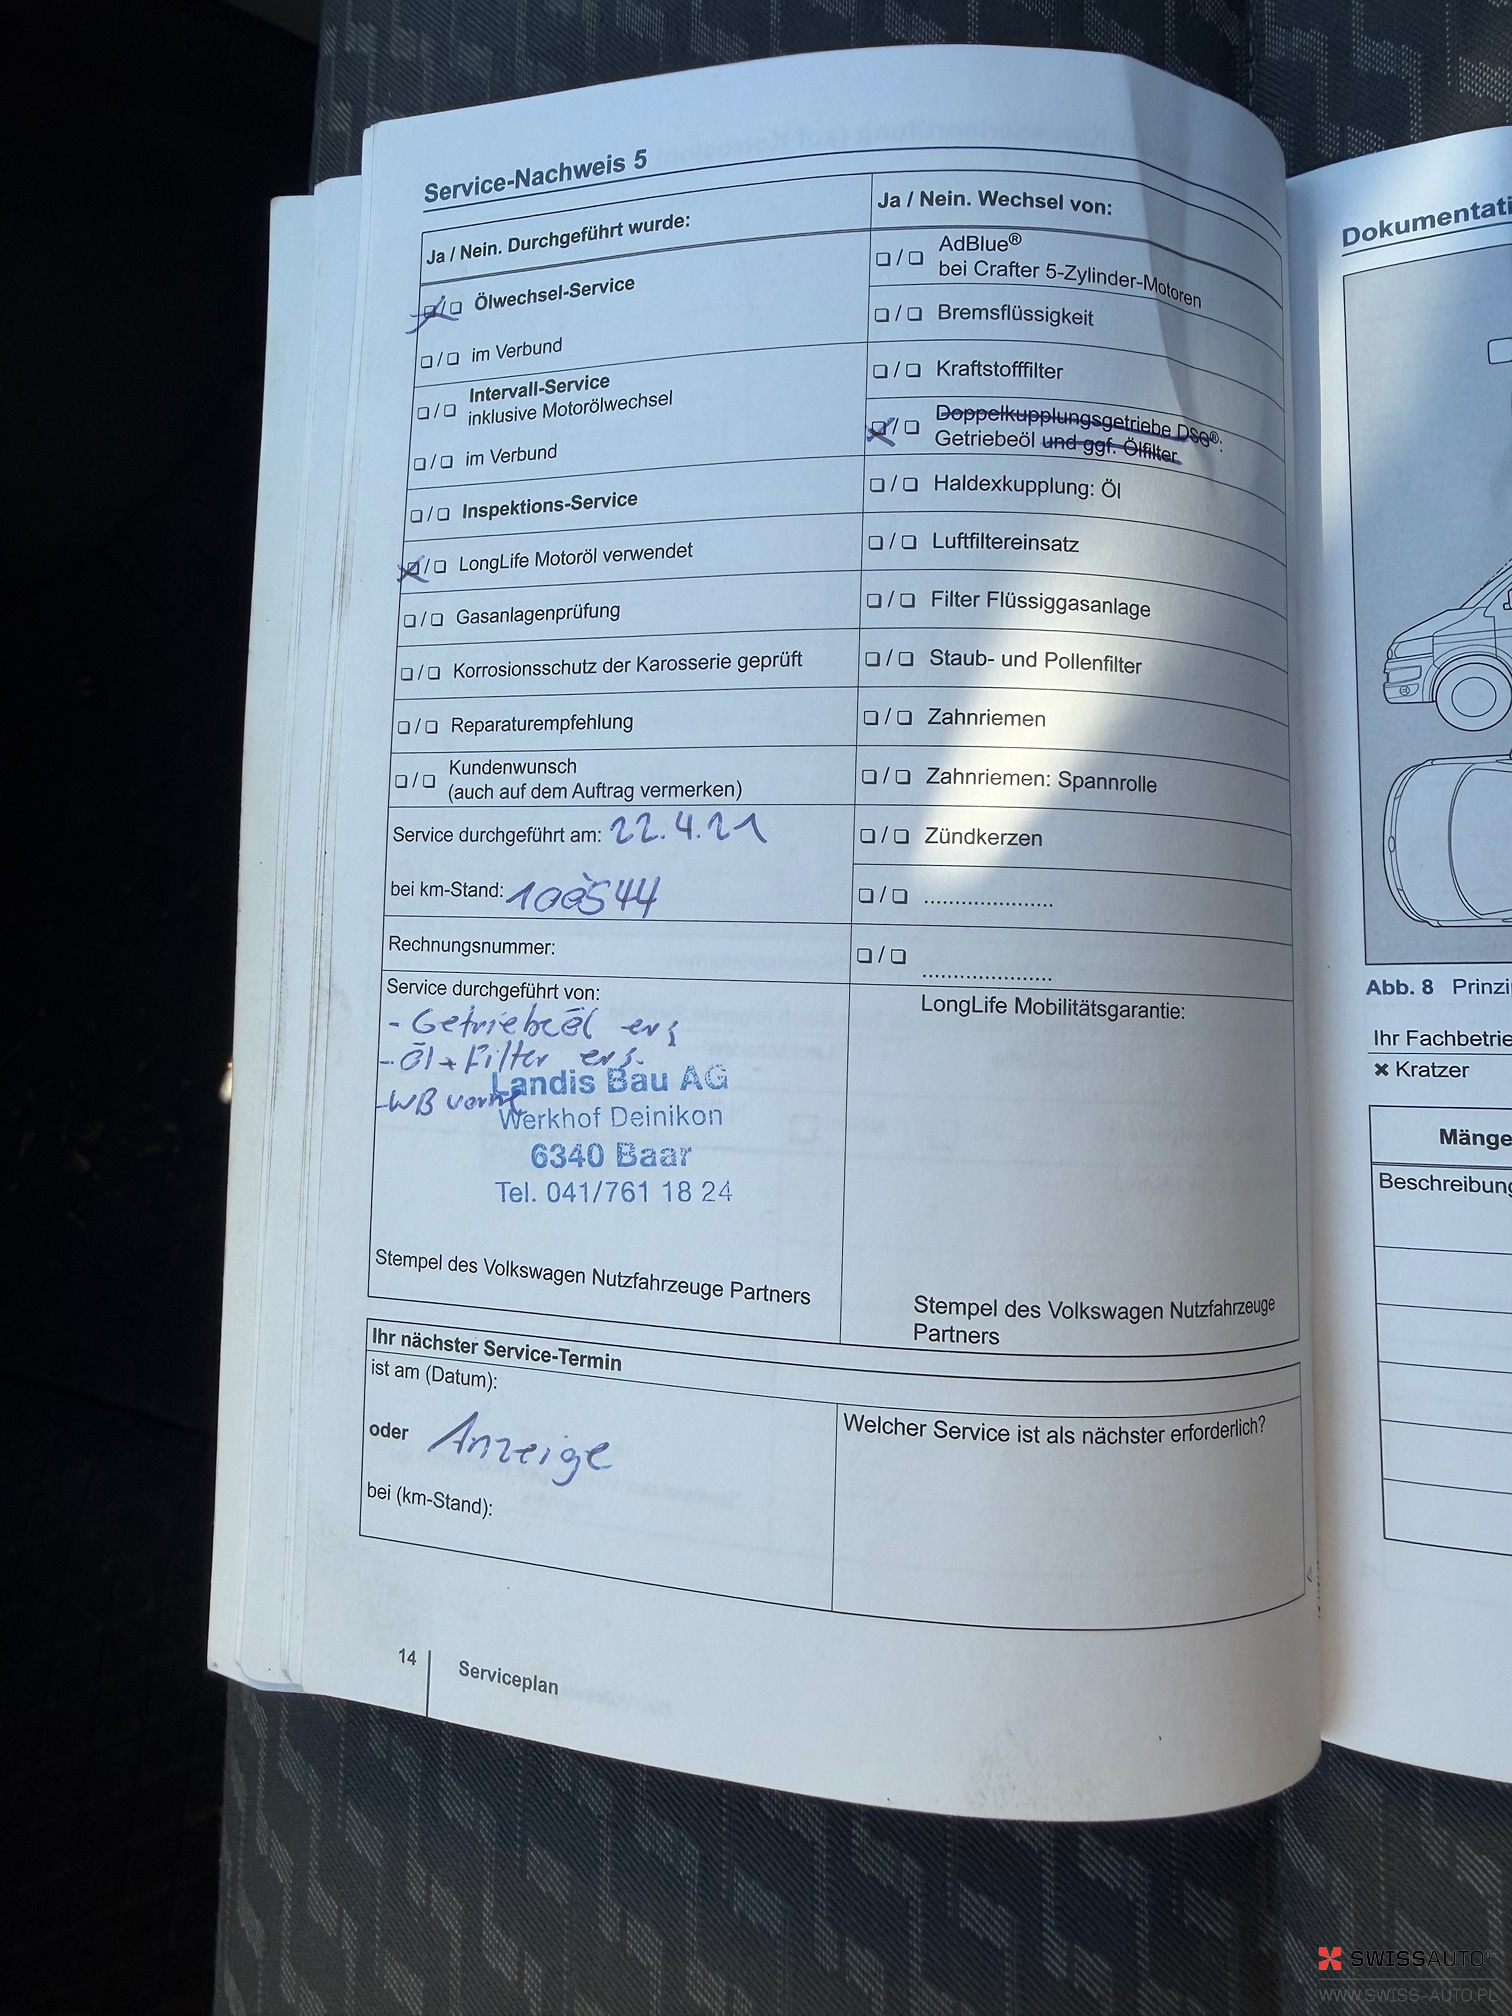 Service-Nachweis 5
Ja / Nein. Durchgeführt wurde:
Ölwechsel-Service
im Verbund
Intervall-Service
inklusive Motorölwechsel
im Verbund
Inspektions-Service
LongLife Motoröl verwendet
Gasanlagenprüfung
Korrosionsschutz der Karosserie geprüft
Reparaturempfehlung
Kundenwunsch
(auch auf dem Auftrag vermerken)
Service durchgeführt am: 22.4.21
bei km-Stand: 100544
Rechnungsnummer:
Service durchgeführt von:
- Getriebeöl ers
- Öl + Filter ers.
- WB vorne
Landis Bau AG
Werkhof Deinikon
6340 Baar
Tel. 041/761 18 24
Stempel des Volkswagen Nutzfahrzeuge Partners
Ja / Nein. Wechsel von:
AdBlue®
bei Crafter 5-Zylinder-Motoren
Bremsflüssigkeit
Kraftstofffilter
Doppelkupplungsgetriebe DSG®:
Getriebeöl und ggf. Ölfilter
Haldexkupplung: Öl
Luftfiltereinsatz
Filter Flüssiggasanlage
Staub- und Pollenfilter
Zahnriemen
Zahnriemen: Spannrolle
Zündkerzen
......................
......................
LongLife Mobilitätsgarantie:
Stempel des Volkswagen Nutzfahrzeuge
Partners
Ihr nächster Service-Termin
ist am (Datum):
oder Anzeige
bei (km-Stand):
Welcher Service ist als nächster erforderlich?
14 Serviceplan
Dokumentati
Abb. 8 Prinzi
Ihr Fachbetrie
✖ Kratzer
Mänge
Beschreibung
SWISSAUTO
WWW.SWISS-AUTO.PL